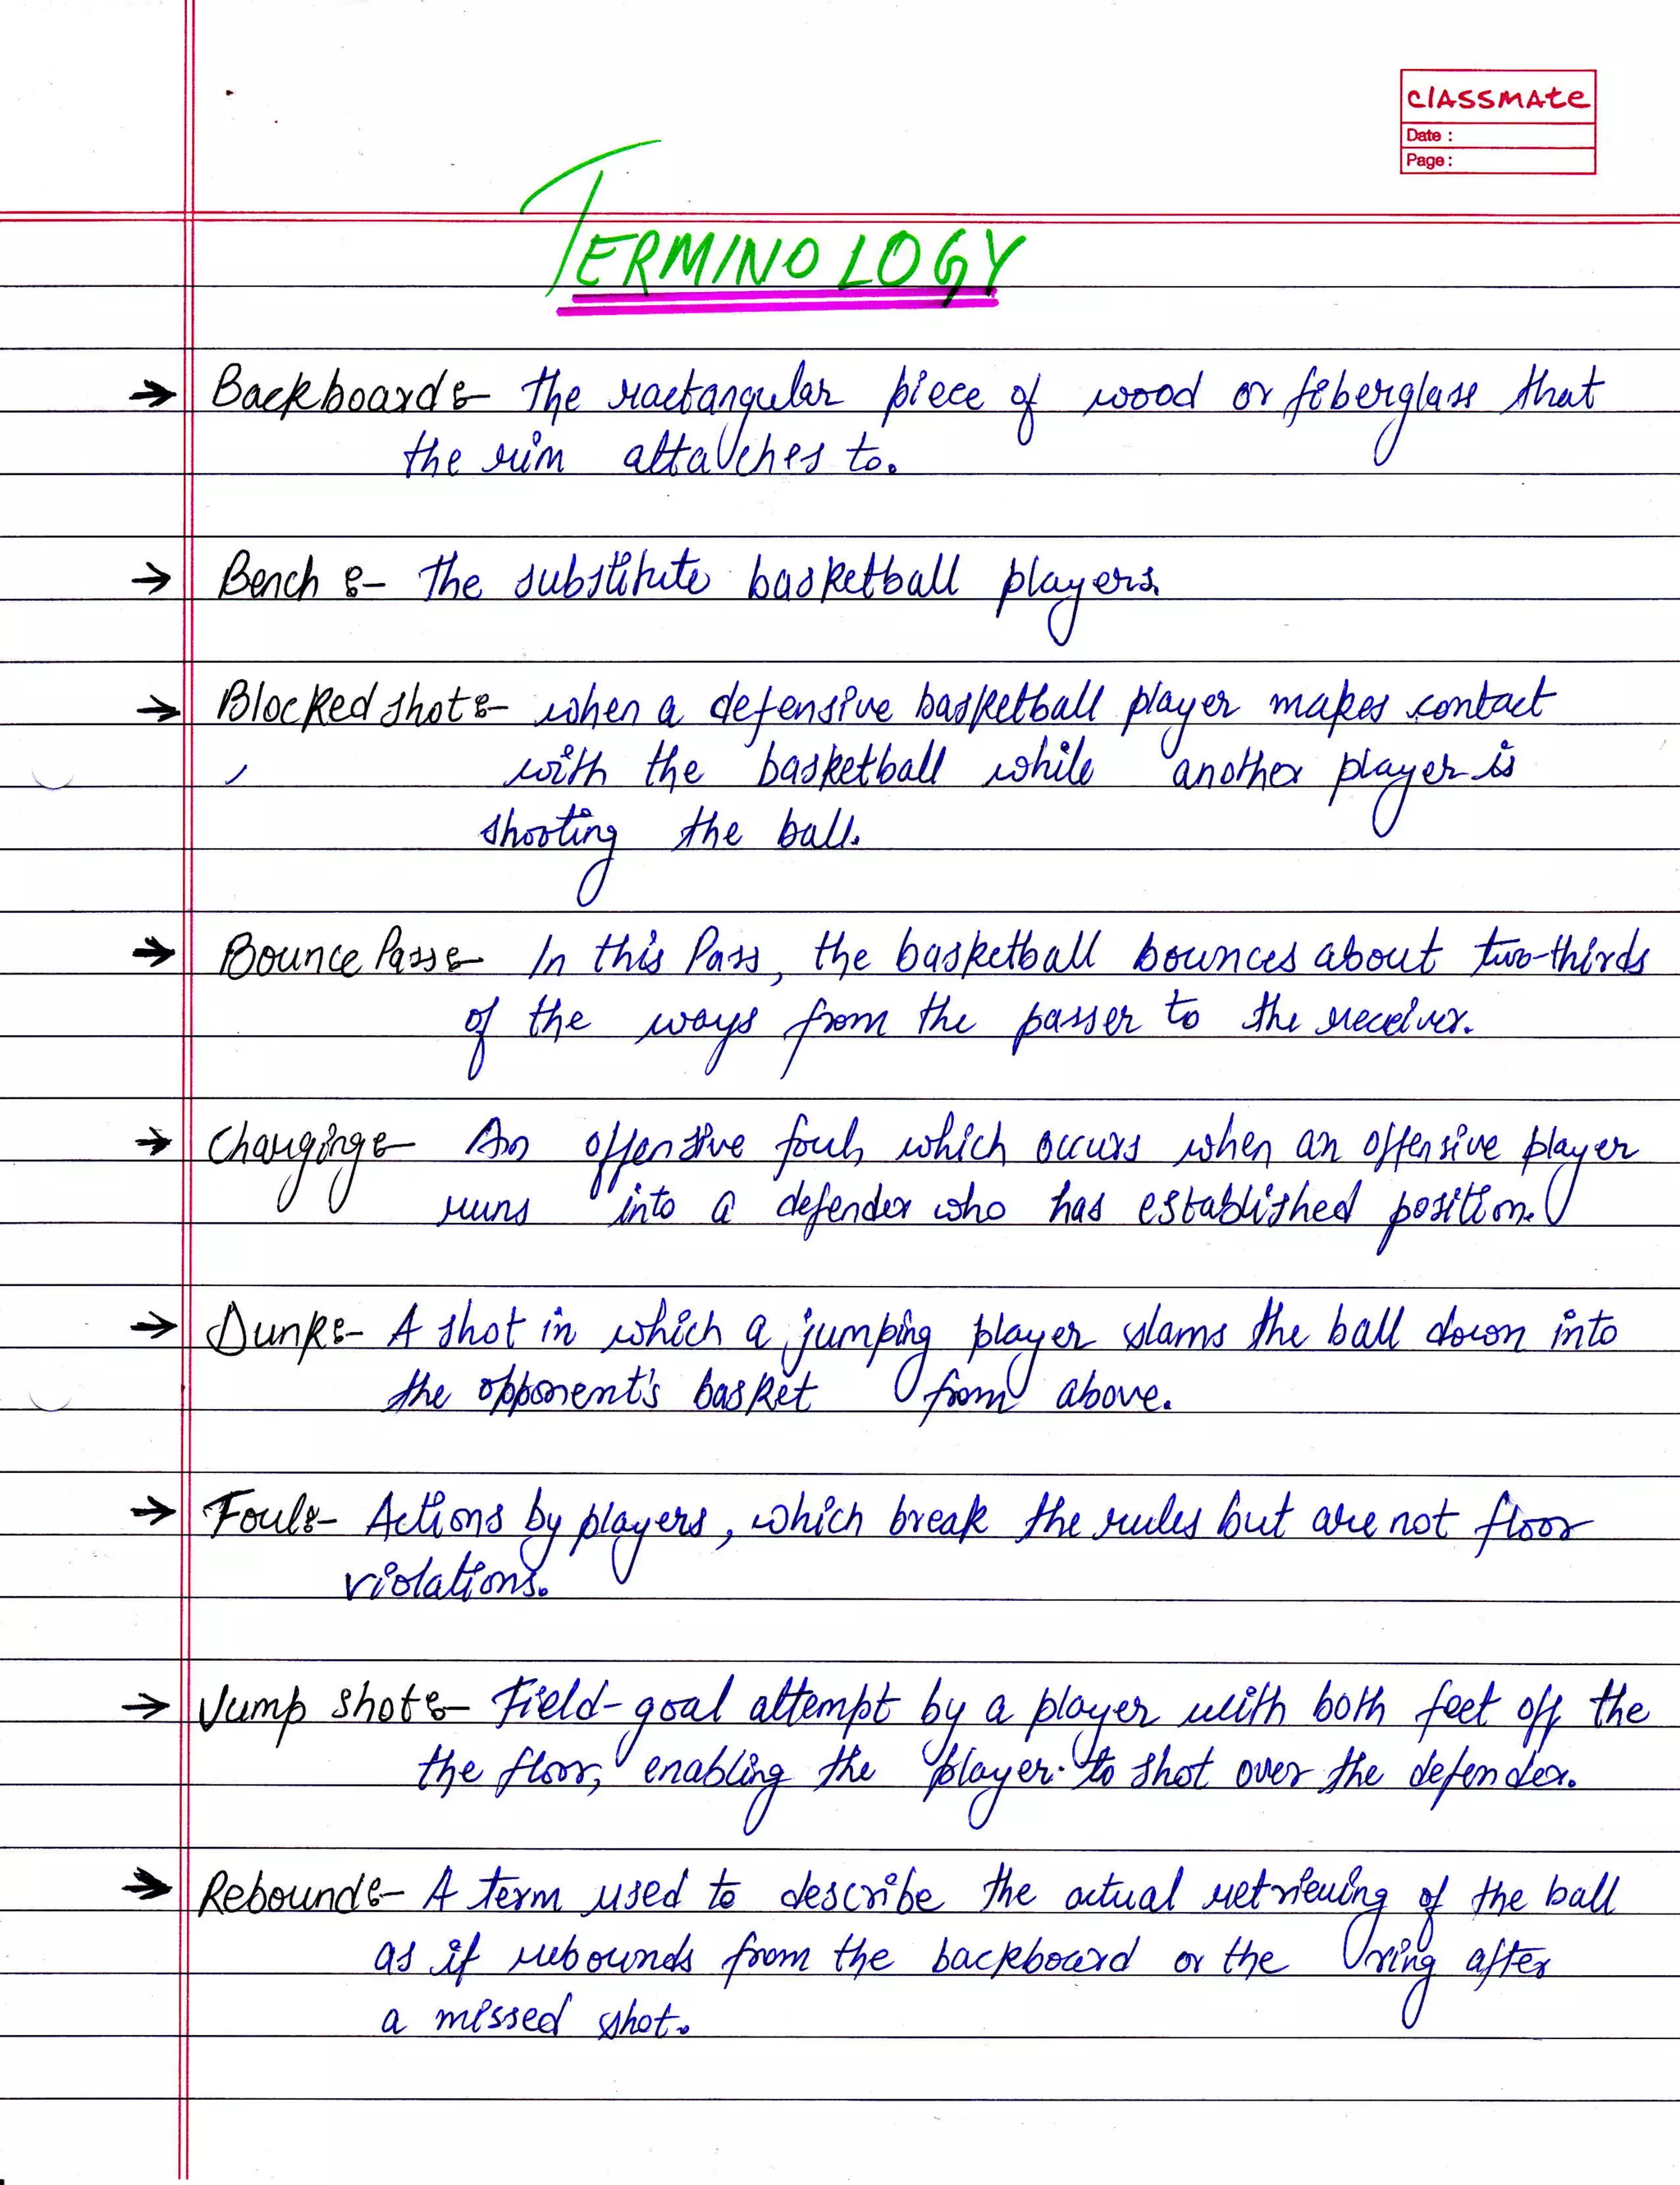 classmate
Date :
Page :
TERMINOLOGY
→ Backboard :- The ractangular piece of wood or fiberglass that
the rim attaches to.
→ Bench :- The substitute basketball players.
→ Blocked shot :- when a defensive basketball player makes contact
with the basketball while another player is
shooting the ball.
→ Bounce Pass :- In this Pass, the basketball bounces about two-thirds
of the ways from the passer to the receiver.
→ Charging :- An offensive foul, which occurs when an offensive player
runs into a defender who has established position.
→ Dunk :- A shot in which a jumping player slams the ball down into
the opponent's basket from above.
→ Foul :- Actions by players, which break the rules but are not floor
violations.
→ Jump shot :- Field-goal attempt by a player with both feet off the
the floor, enabling the player to shot over the defender.
→ Rebound :- A term used to describe the actual retrieving of the ball
as if rebounds from the backboard or the ring after
a missed shot.